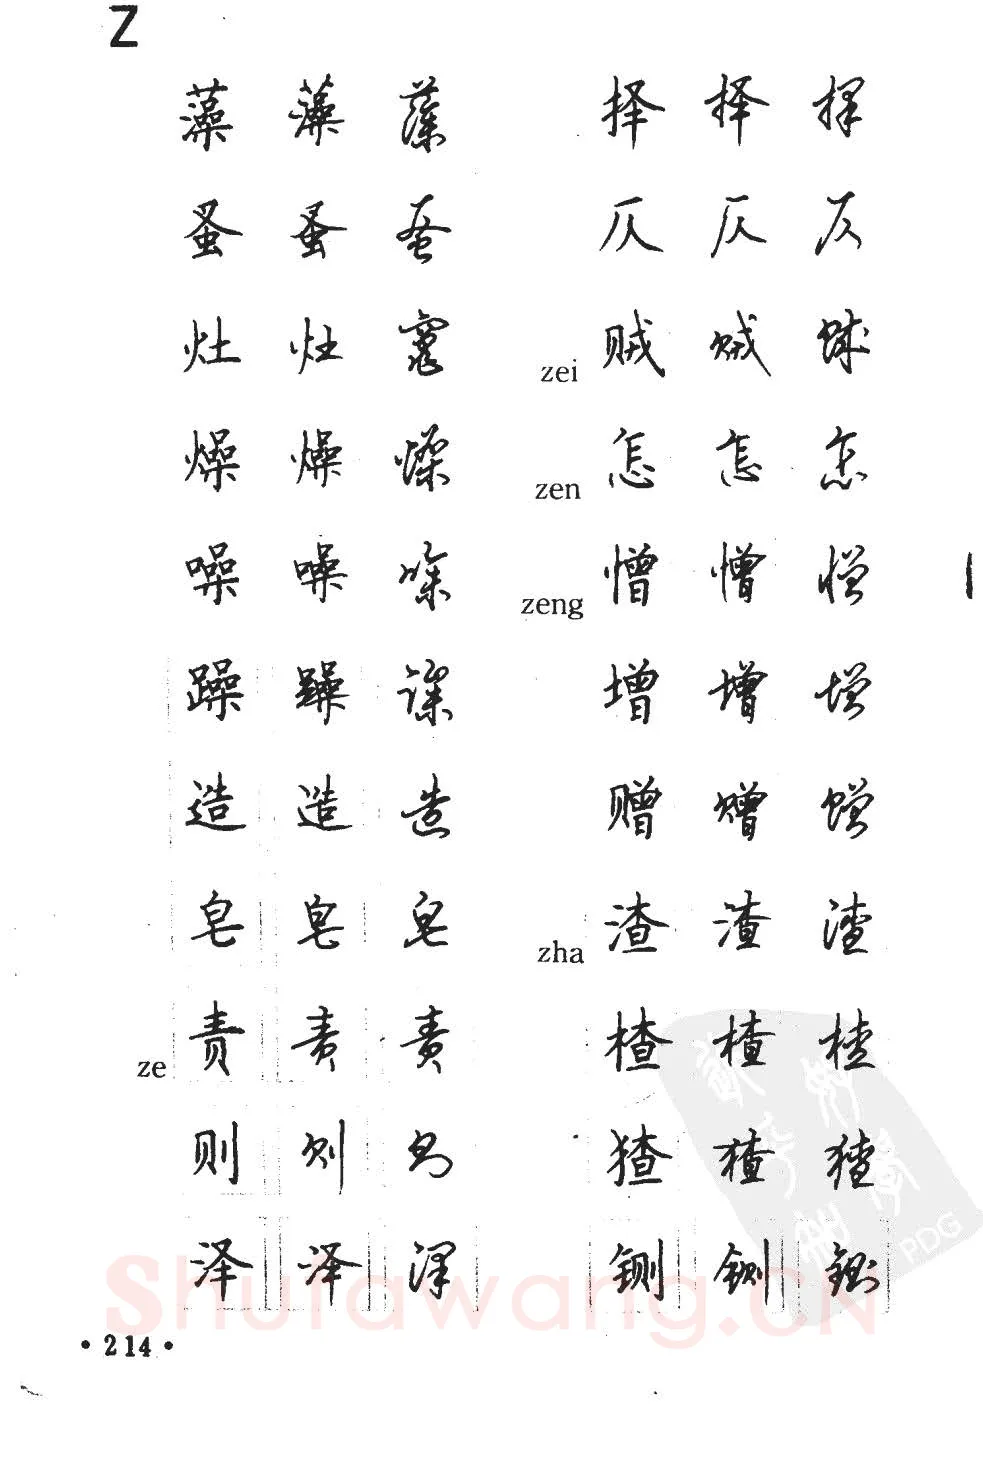 Z
藻 藻 藻
蚤 蚤 蚤
灶 灶 竈
燥 燥 燥
噪 噪 噪
躁 躁 躁
造 造 造
皂 皂 皂
ze 责 责 责
则 则 则
泽 泽 泽
择 择 择
仄 仄 仄
zei 贼 贼 贼
zen 怎 怎 怎
zeng 憎 憎 憎
增 增 增
赠 赠 赠
zha 渣 渣 渣
楂 楂 楂
猹 猹 猹
铡 铡 铡
Shufawang.CN
PDG
·214·